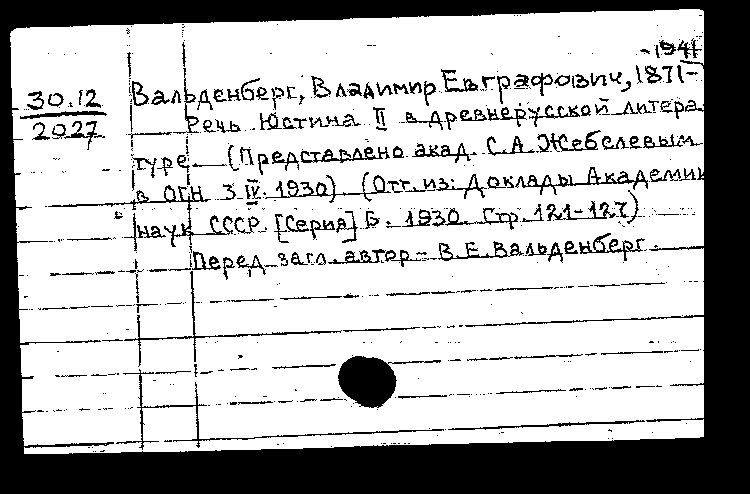 -1941
30.12
2027
Вальденберг, Владимир Евграфович, 1871-
Речь Юстина II в древнерусской литера
туре. (Представлено акад. С.А. Жебелевым
в ОГН 3 IV. 1930). (Отт. из: Доклады Академии
наук СССР. [Серия] Б. 1930. Стр. 121-127)
Перед загл. автор - В.Е. Вальденберг.